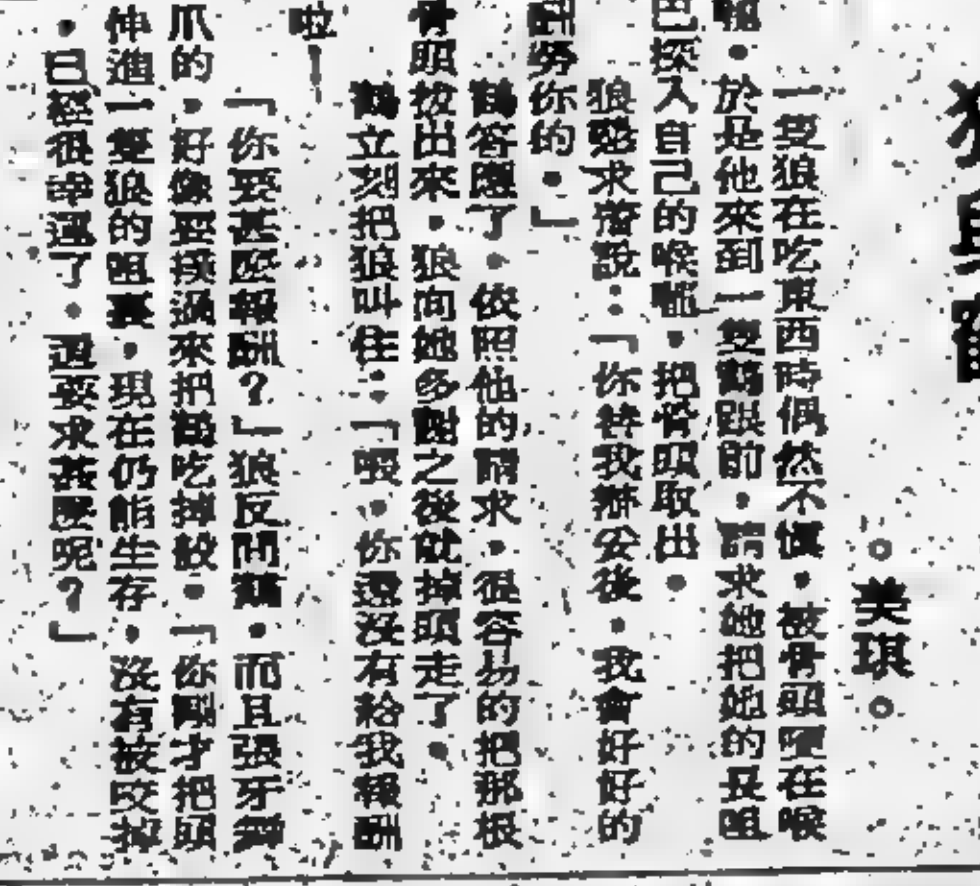 狼與鶴
○美琪○
一隻狼在吃東西時偶然不慎・被骨頭哽在喉
嚨・於是他來到一隻鶴跟前・請求她把她的長咀
巴探入自己的喉嚨・把骨頭取出・
狼懇求着說：「你替我辦妥後・我會好好的
酬勞你的・」
鶴答應了・依照他的請求・很容易的把那根
骨頭拔出來・狼向她多謝之後就掉頭走了・
鶴立刻把狼叫住：「喂・你還沒有給我報酬
啦—
「你要甚麼報酬？」狼反問鶴・而且張牙舞
爪的・好像要撲過來把鶴吃掉般・「你剛才把頭
伸進一隻狼的咀裏・現在仍能生存・沒有被咬掉
・已經很幸運了・還要求甚麼呢？」